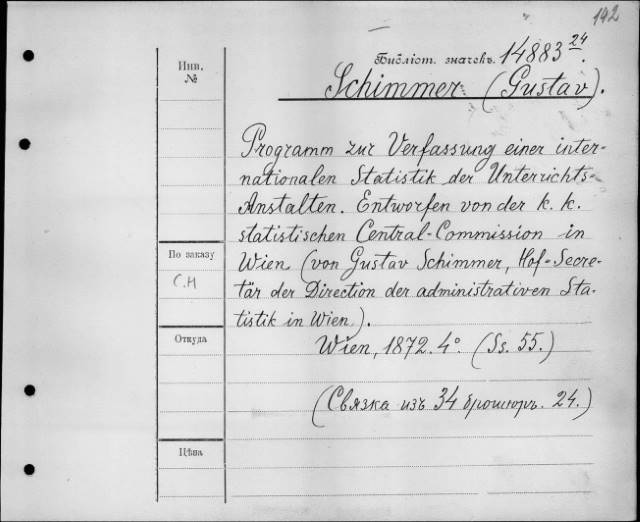 142
Инв.
№
Библіот. значекъ. 14883 24.
Schimmer (Gustav).
Programm zur Verfassung einer inter-
nationalen Statistik der Unterrichts-
Anstalten. Entworfen von der k. k.
statistischen Central-Commission in
Wien (von Gustav Schimmer, Hof-Secre-
tär der Direction der administrativen Sta-
tistik in Wien).
Wien, 1872. 4°. (Ss. 55.)
(Связка изъ 34 брошюръ. 24.)
По заказу
С.Н
Откуда
Цѣна